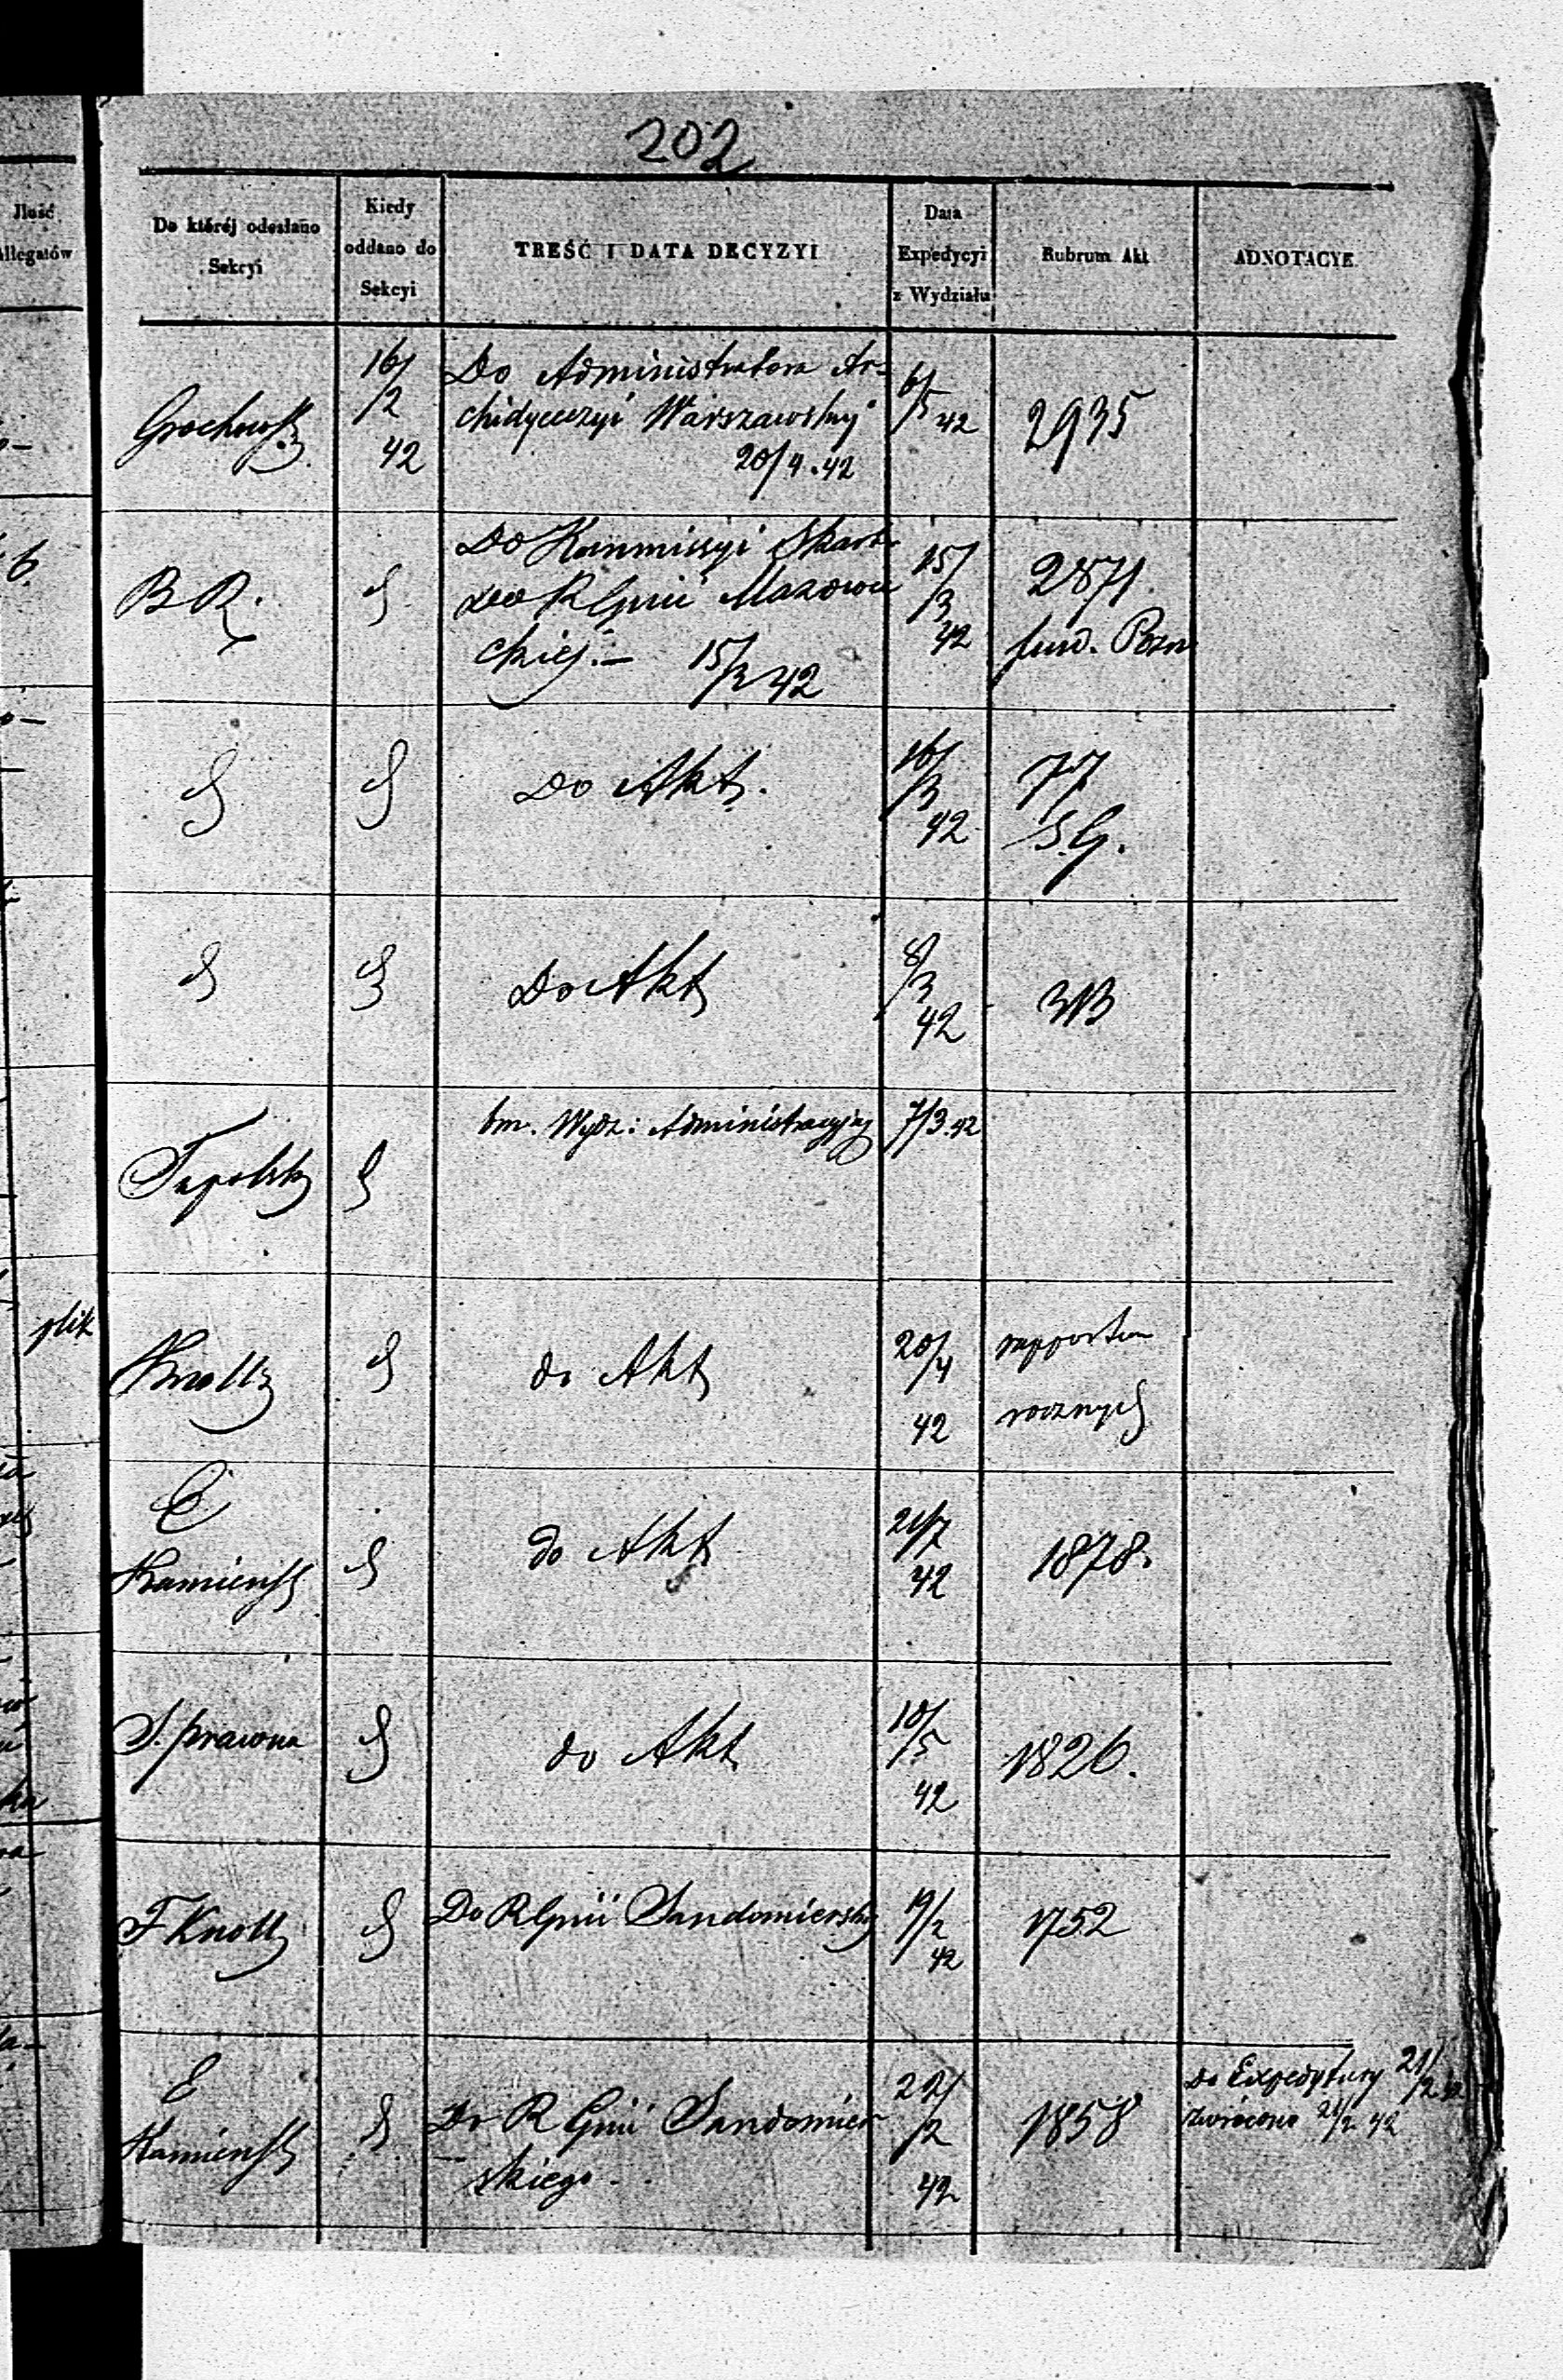 202
Ilość
Allegatów
Do któréj odesłano
Sekcyi
Kiedy
oddano do
Sekcyi
TREŚĆ I DATA DECYZYI
Data
Expedycyi
z Wydziału
Rubrum Akt
ADNOTACYE
16/2
42
Do Administratora Ar-
chidyecezyi Warszawskiej
20/4.42
6/5 42
2935
B R.
Do Kommissyi Skarbu
do R Gnii Mazowie
ckiej.— 15/3 42
15/3
42
2871.
fund. Pozn
Do Akt.
16/3
42
77
S.G.
Do Akt
8/3
42
bm. Wydz: Administracyjny
7/3.42
plik
Knoll
do Akt
20/4
42
rapportów
rocznych
E
Kamieńsk
do Akt
21/7
42
1878.
S. prawna
do Akt
10/5
42
1826.
F Knoll
Do R Gnii Sandomierskiej
19/2
42
1752
E
Kamieńsk
Do R Gnii Sandomier
skiego
22/2
42
1858
Do Expedytury 21/2 42
zwrócono 21/2 42